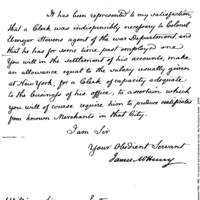 It has been represented to my satisfaction,
that a Clerk was indispensibly necessary to Colonel
Ebenezer Stevens agent of the war Department and
that he has for some time past employed one
You will in the settlement of his accounts, make
an allowance equal to the salary usually given
at New York, for a Clerk of capacity adequate
to the business of his office, to ascertain which
you will of course require him to produce certificates
from known Merchants in that City.
I am Sir
Your Obedient Servant
James McHenry